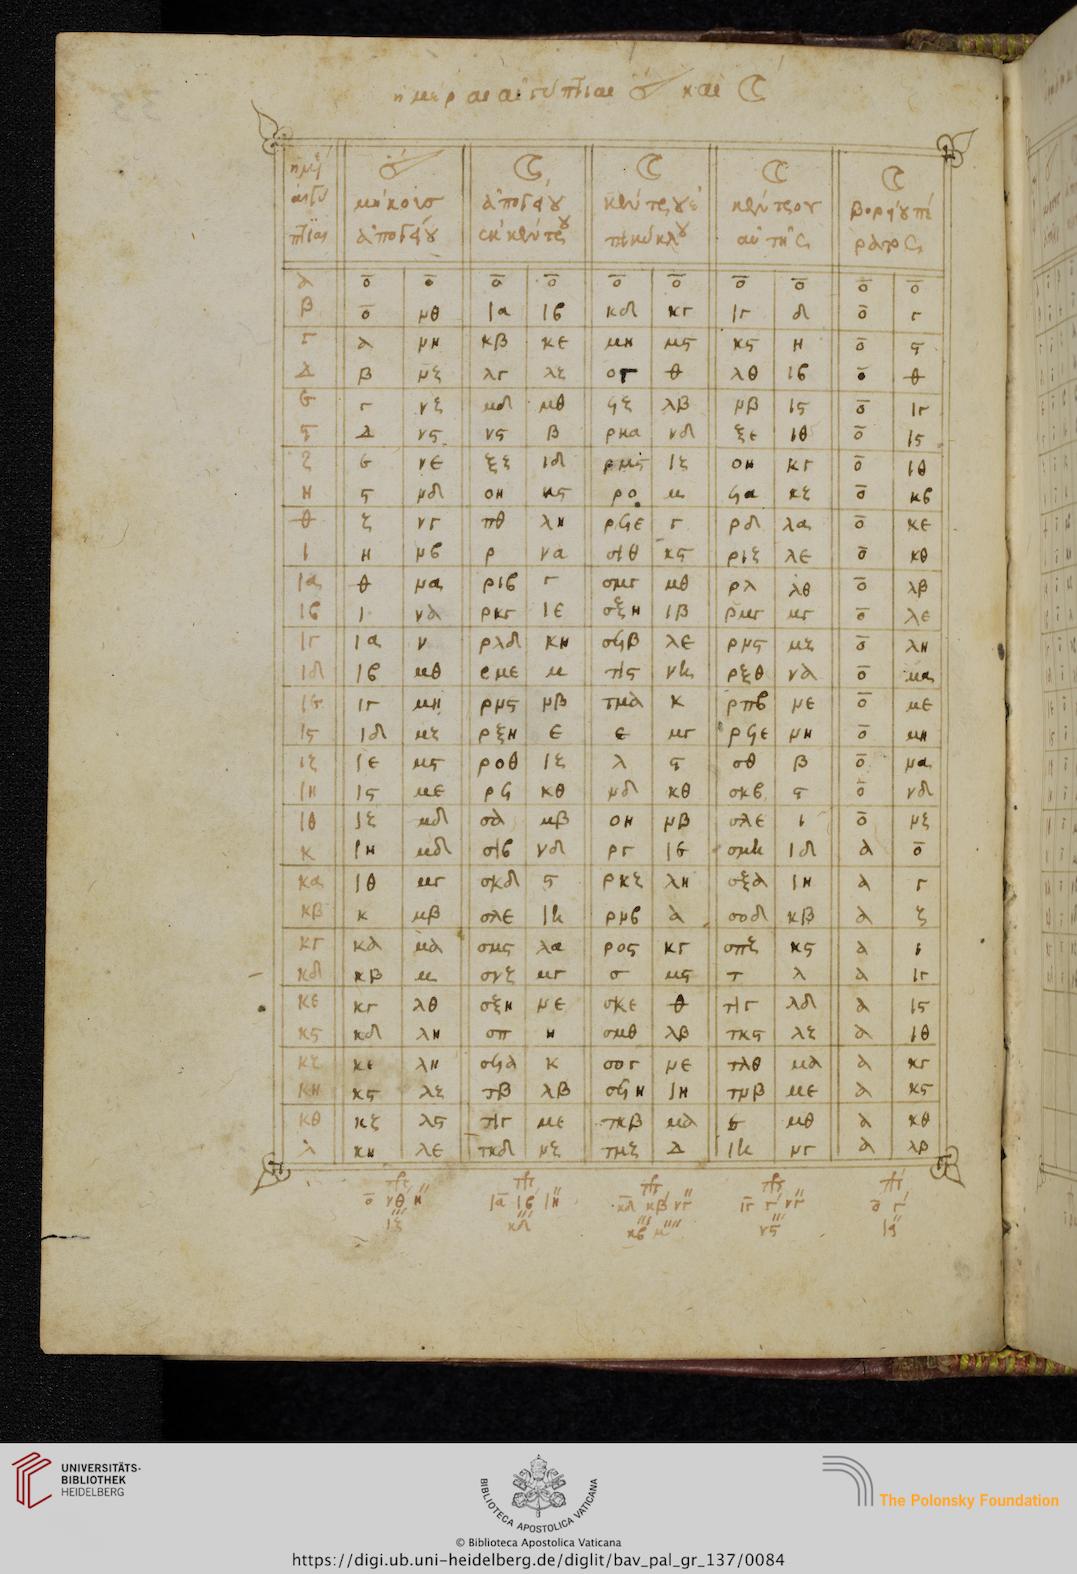 ἡμέραι αἰγύπτιαι καὶ
α ο ο ο ο ο ο ο ο ο ο
β ο μθ ια ιβ κδ κγ ιγ δ ο γ
γ α μη κβ κε μη μς κς η ο ς
δ β μζ λγ λζ ογ θ λθ ιβ ο θ
ε γ νζ μδ μθ ϟζ λβ μβ ις ο ιγ
ς δ νς νς β ρκα νδ ξε ιθ ο ις
ζ ε νε ξζ ιδ ρμς ιζ οη κγ ο ιθ
η ς μδ οη κς ρο μ ϟα κζ ο κβ
θ ζ νγ πθ λη ρϟε γ ρδ λα ο κε
ι η μβ ρ να σιθ κς ριζ λε ο κθ
ια θ μα ριβ γ σμγ μθ ρλ λθ ο λβ
ιβ ι να ρκγ ιε σξη ιβ ρμγ μγ ο λε
ιγ ια ν ρλδ κη σϟβ λε ρμς μζ ο λη
ιδ ιβ μθ ρμε μ τις νη ρξθ να ο μα
ιε ιγ μη ρμς μβ τμα κ ρπβ με ο με
ις ιδ μζ ρξη ε ε μγ ρϟε μη ο μη
ιζ ιε μς ροθ ιζ λ ς σθ β ο μα
ιη ις με ρϟ κθ μδ κθ σκβ ς ο νδ
ιθ ιζ μδ σα μβ οη μβ σλε ι ο μζ
κ ιη μδ σιβ νδ ργ ιε σμη ιδ α ο
κα ιθ μγ σκδ ς ρκζ λη σξα ιη α γ
κβ κ μβ σλε ιη ρμβ α σοδ κβ α ζ
κγ κα μα σμς λα ρος κγ σπζ κς α ι
κδ κβ μ σνζ μγ σ μς τ λ α ιγ
κε κγ λθ σξη με σκε θ τιγ λδ α ις
κς κδ λη σπ η σμθ λβ τκς λζ α ιθ
κζ κε λη σϟα κ σογ με τλθ μα α κγ
κη κς λζ τβ λβ σϟη ιη τμβ με α κς
κθ κζ λς τιγ με τκβ μα ε μθ α κθ
λ κη λε τκδ μζ τμζ δ ιη μγ α λβ
ο νθ η ια ιβ ιη κδ κβ νγ ιγ γ νγ α γ
ιζ κδ κβ μ νς
UNIVERSITÄTS-
BIBLIOTHEK
HEIDELBERG
BIBLIOTECA APOSTOLICA VATICANA
The Polonsky Foundation
© Biblioteca Apostolica Vaticana
https://digi.ub.uni-heidelberg.de/diglit/bav_pal_gr_137/0084